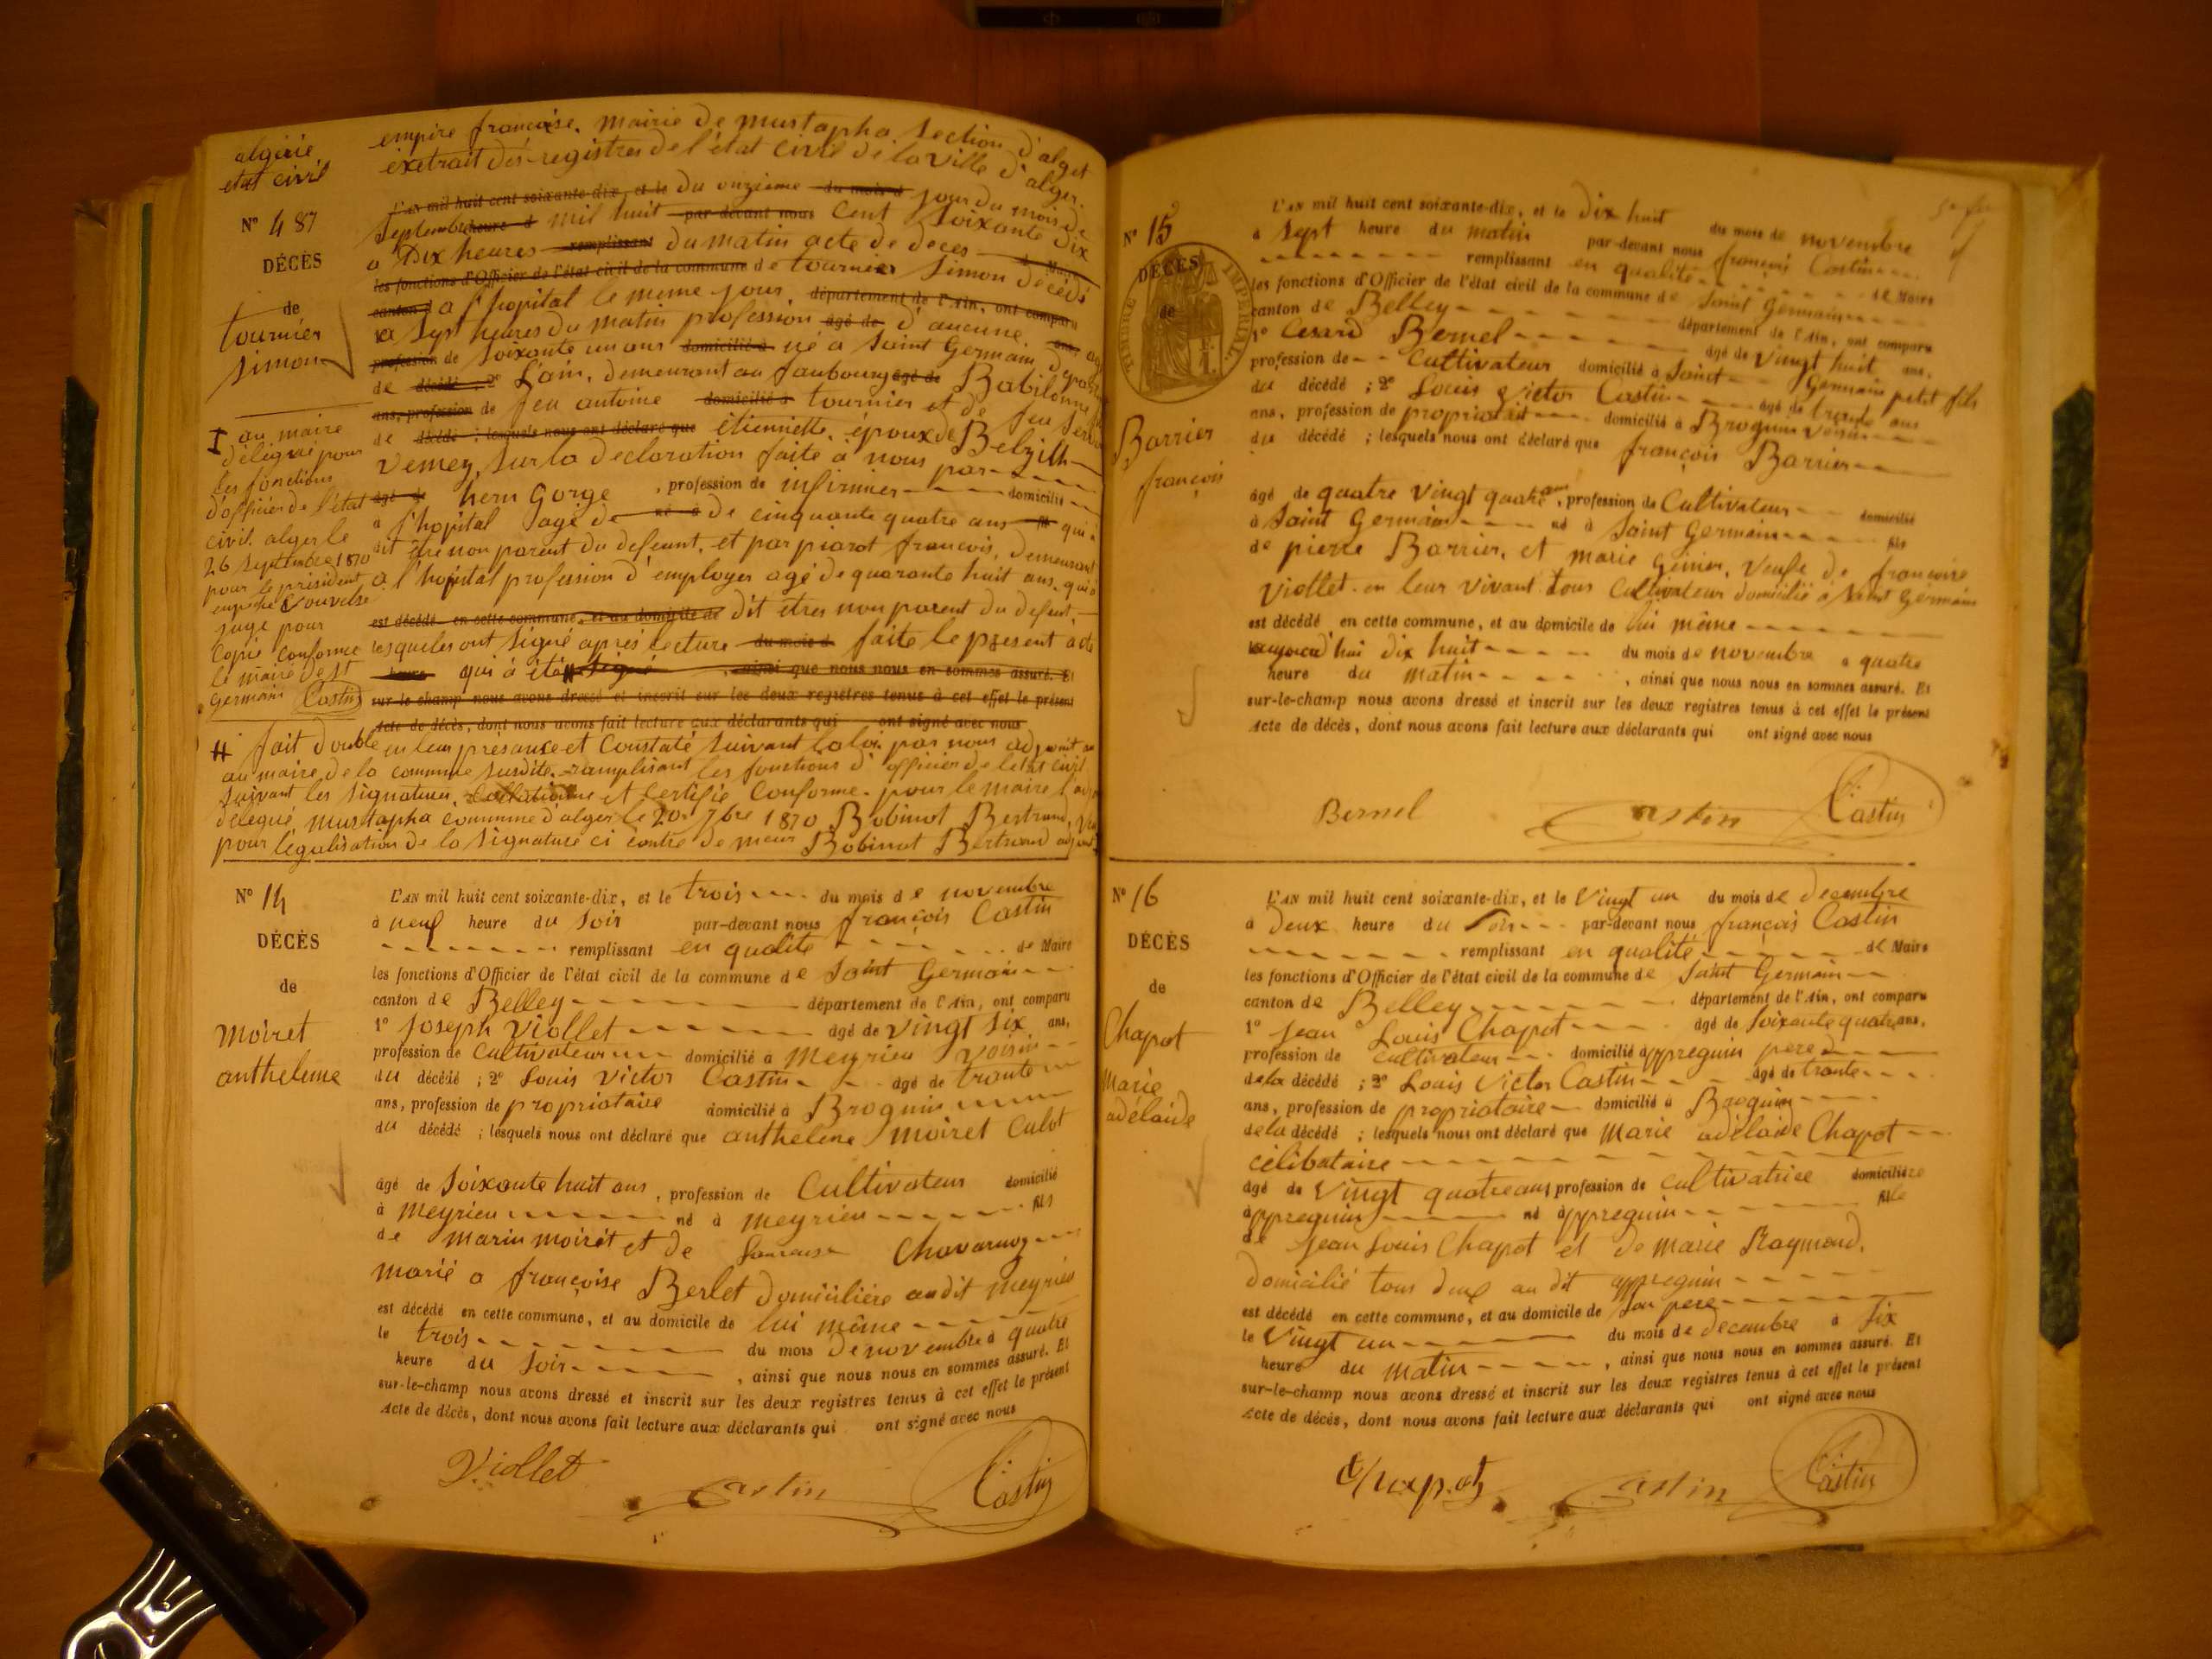 algérie
état civil
N° 487
DÉCÈS
de
tournier
Simon
empire française. mairie de mustapha section d'alger
extrait des registres de l'état civil de la ville d'alger.
L'AN mil huit cent soixante-dix, et le du onzième du mois d jour du mois de
Septembre heure d mil huit par-devant nous cent soixante dix
a Dix heures remplissant du matin acte de deces
les fonctions d'Officier de l'état civil de la commune de tournier Simon décédé
canton d a l'hopital le meme jour département de l'Ain, ont comparu
a Sept heures du matin profession âgé de d'aucune. ans,
profession de soixante un ans domicilié à né a Saint Germain
de décédé ; 2° L'ain, demeurant au faubourg âgé de Babilonne
ans, profession de feu antoine domicilié à tournier et de feu
de décédé ; lesquels nous ont déclaré que étiennette. époux de
vemey, Sur la declaration faite à nous par
âgé de hern Gorge , profession de infirmier domicilié
a l'hopital agé de né à de cinquante quatre ans qui a
dit être non parent du defeunt, et par piarot francois, demeurant
a l'hopital profession d'employer agé de quarante huit ans, qui a
est décédé en cette commune, et au domicile de dit etres non parent du defunt,
lesqueles ont signé après lecture du mois d faite le present acte
heure qui à été ainsi que nous nous en sommes assuré. Et
sur-le-champ nous avons dressé et inscrit sur les deux registres tenus à cet effet le présent
Acte de décès, dont nous avons fait lecture aux déclarants qui ont signé avec nous
au maire
délégué pour
les fonctions
d'officier de l'état
civil. alger le
26 septembre 1870
pour le président
empeché
juge pour
Copie Conforme
le maire de St
Germain Castin
fait double en leur présance et Constaté suivant la loi par nous adjoint
au maire de la commune susdite. ramplisant les fonctions d'officier de l'état civil
Suivant les signatures. et Certifié Conforme. pour le maire
délégué, mustapha commune d'alger le 20. 7bre 1870 Bobinot Bertrand,
pour légalisation de la signature ci contre de Bobinot Bertrand
N° 14
DÉCÈS
de
moiret
anthelme
L'AN mil huit cent soixante-dix, et le trois du mois de novembre
à neuf heure du soir par-devant nous françois Castin
remplissant en qualité de Maire
les fonctions d'Officier de l'état civil de la commune de Saint Germain
canton de Belley département de l'Ain, ont comparu
1° Joseph Viollet âgé de vingt six ans,
profession de cultivateur domicilié à meyrieu voisin
du décédé ; 2° Louis Victor Castin âgé de trante
ans, profession de propriataire domicilié à Brognin
du décédé ; lesquels nous ont déclaré que anthelme moiret Culot
âgé de soixante huit ans , profession de Cultivateur domicilié
à meyrieu né à meyrieu fils
de marin moiret et de
marié a françoise Berlet domicilière audit meyrieu
est décédé en cette commune, et au domicile de lui même
le trois du mois de novembre à quatre
heure du soir , ainsi que nous nous en sommes assuré. Et
sur-le-champ nous avons dressé et inscrit sur les deux registres tenus à cet effet le présent
Acte de décès, dont nous avons fait lecture aux déclarants qui ont signé avec nous
Viollet Castin Castin
N° 15
DÉCÈS
de
TIMBRE IMPÉRIAL
Barrier
françois
L'AN mil huit cent soixante-dix, et le dix huit du mois de novembre
à sept heure du matin par-devant nous françois Castin
remplissant en qualité de Maire
les fonctions d'Officier de l'état civil de la commune de Saint Germain
canton de Belley département de l'Ain, ont comparu
1° Cesard Bernel âgé de vingt huit ans,
profession de cultivateur domicilié à Saint Germain petit fils
du décédé ; 2° Louis Victor Castin âgé de trente ans
ans, profession de propriatair domicilié à Brognin voisin
du décédé ; lesquels nous ont déclaré que françois Barrier
âgé de quatre vingt quatre ans , profession de Cultivateur domicilié
à Saint Germain né à Saint Germain fils
de pierre Barrier, et marie Genin, veufe de francoise
Viollet. en leur vivant tous Cultivateur domicilié a Saint Germain
est décédé en cette commune, et au domicile de lui même
aujourd'hui dix huit du mois de novembre a quatre
heure du matin , ainsi que nous nous en sommes assuré. Et
sur-le-champ nous avons dressé et inscrit sur les deux registres tenus à cet effet le présent
Acte de décès, dont nous avons fait lecture aux déclarants qui ont signé avec nous
Bernel Castin Castin
N° 16
DÉCÈS
de
Chapot
Marie
adélaide
L'AN mil huit cent soixante-dix, et le Vingt un du mois de decembre
à Deux heure du Soir par-devant nous françois Castin
remplissant en qualité de Maire
les fonctions d'Officier de l'état civil de la commune de Saint Germain
canton de Belley département de l'Ain, ont comparu
1° Jean Louis Chapot âgé de soixante quatre ans,
profession de cultivateur domicilié à appreguin pere
de la décédé ; 2° Louis Victor Castin âgé de trante
ans, profession de propriataire domicilié à Brognin
de la décédé ; lesquels nous ont déclaré que Marie adélaide Chapot
célibataire
âgé de Vingt quatre ans profession de cultivatrice domiciliére
à appreguin né à appreguin fille
de Jean Louis Chapot et de marie Raymond,
domicilié tous deux au dit appreguin
est décédé en cette commune, et au domicile de son pere
le Vingt un du mois de decembre à six
heure du matin , ainsi que nous nous en sommes assuré. Et
sur-le-champ nous avons dressé et inscrit sur les deux registres tenus à cet effet le présent
Acte de décès, dont nous avons fait lecture aux déclarants qui ont signé avec nous
Chapot Castin Castin